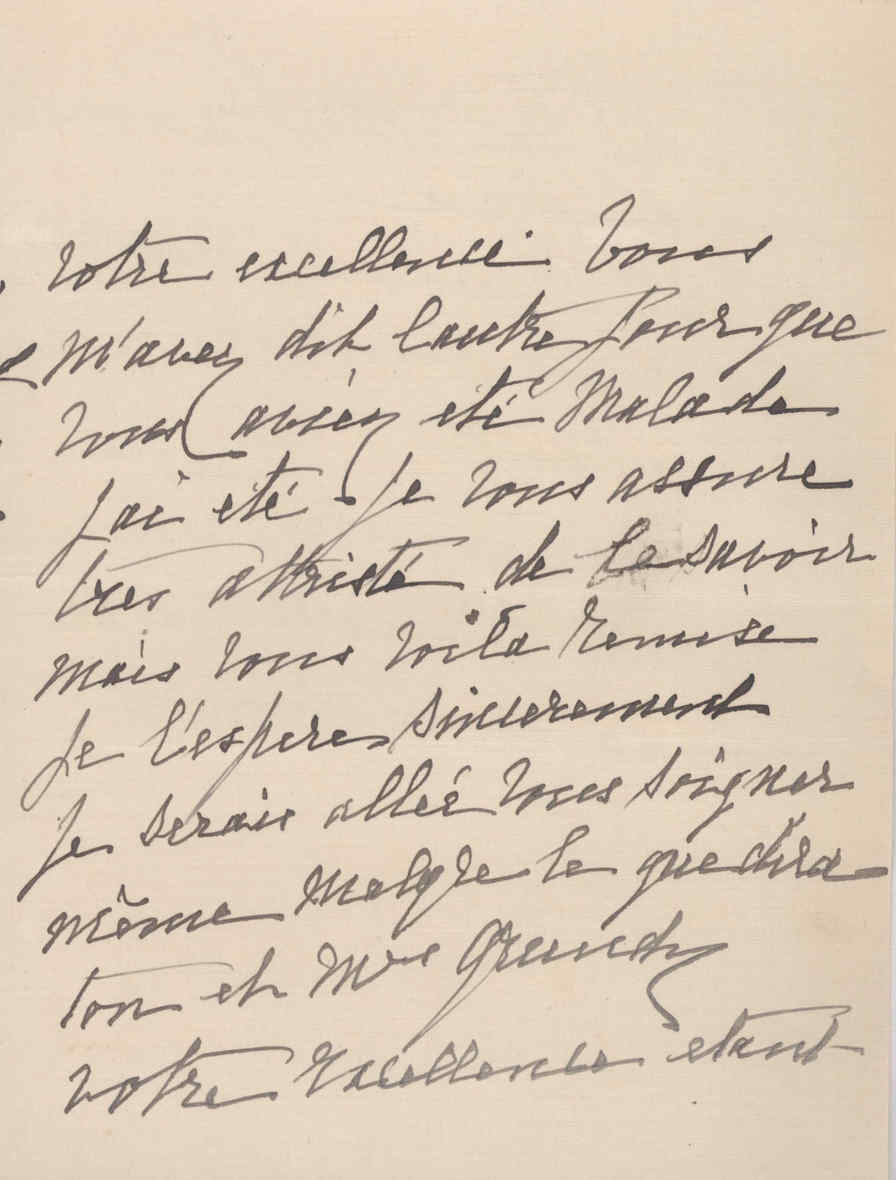 votre excellence. Vous
m'avez dit lautre jour que
vous aviéz eté Malade
j'ai eté je vous assure
tres attristé de le savoir
mais vous voila remise
je l'espere sincerement
je serais alleé vous soigner
même malgre le que dira
ton et Mrs Grundy
votre excellence etant